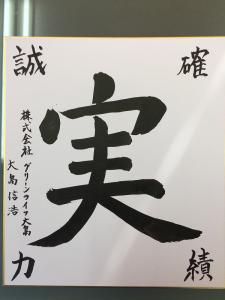 確
誠
実
績
力
株式会社 グリーンライフ大島
大島信浩